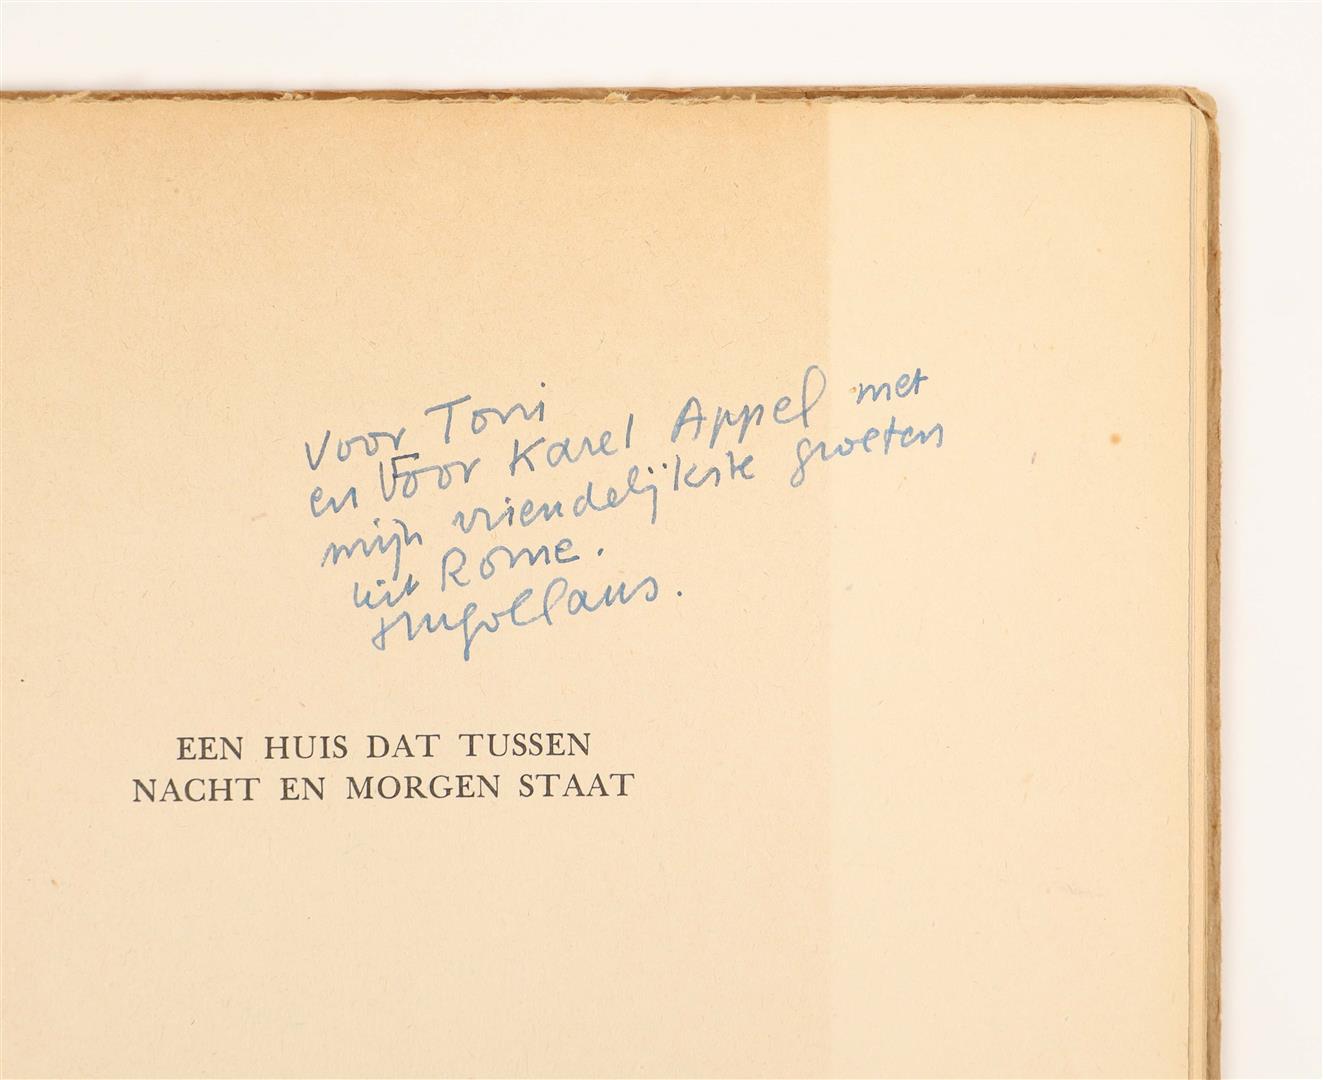 voor Toni
en Voor Karel Appel met
mijn vriendelijkste groeten
uit Rome.
HugoClaus.
EEN HUIS DAT TUSSEN
NACHT EN MORGEN STAAT